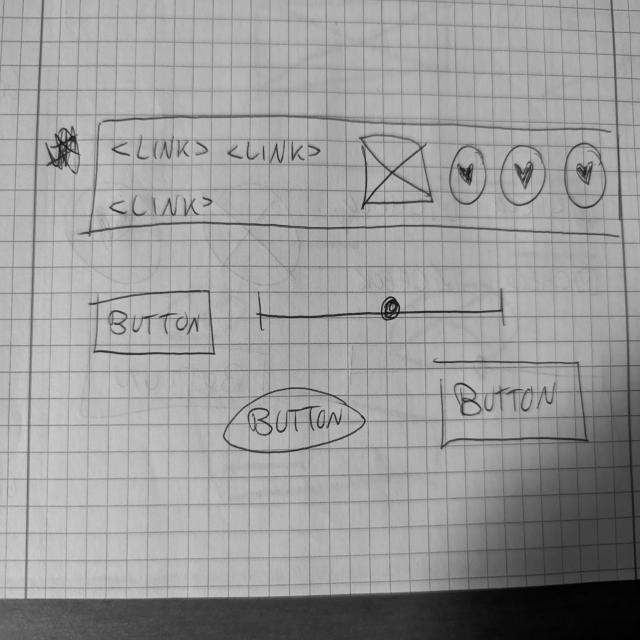 <LINK> <LINK>
<LINK>
BUTTON
BUTTON
BUTTON